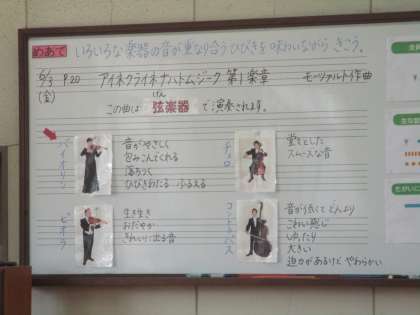 めあて いろいろな楽器の音が重なり合うひびきを味わいながら きこう。
6/3 P.20 アイネクライネナハトムジーク 第1楽章 モーツァルト作曲
(金)
この曲は 弦楽器 で演奏されます。
げん
バイオリン
音がやさしく
包みこんでくれる
落ちつく
ひびきわたる ふるえる
ビオラ
生き生き
おだやか
きれいに出る音
チェロ
堂々とした
スムーズな音
コントラバス
音が低くて どんより
こわい感じ
ゆったり
大きい
迫力があるけど やわらかい